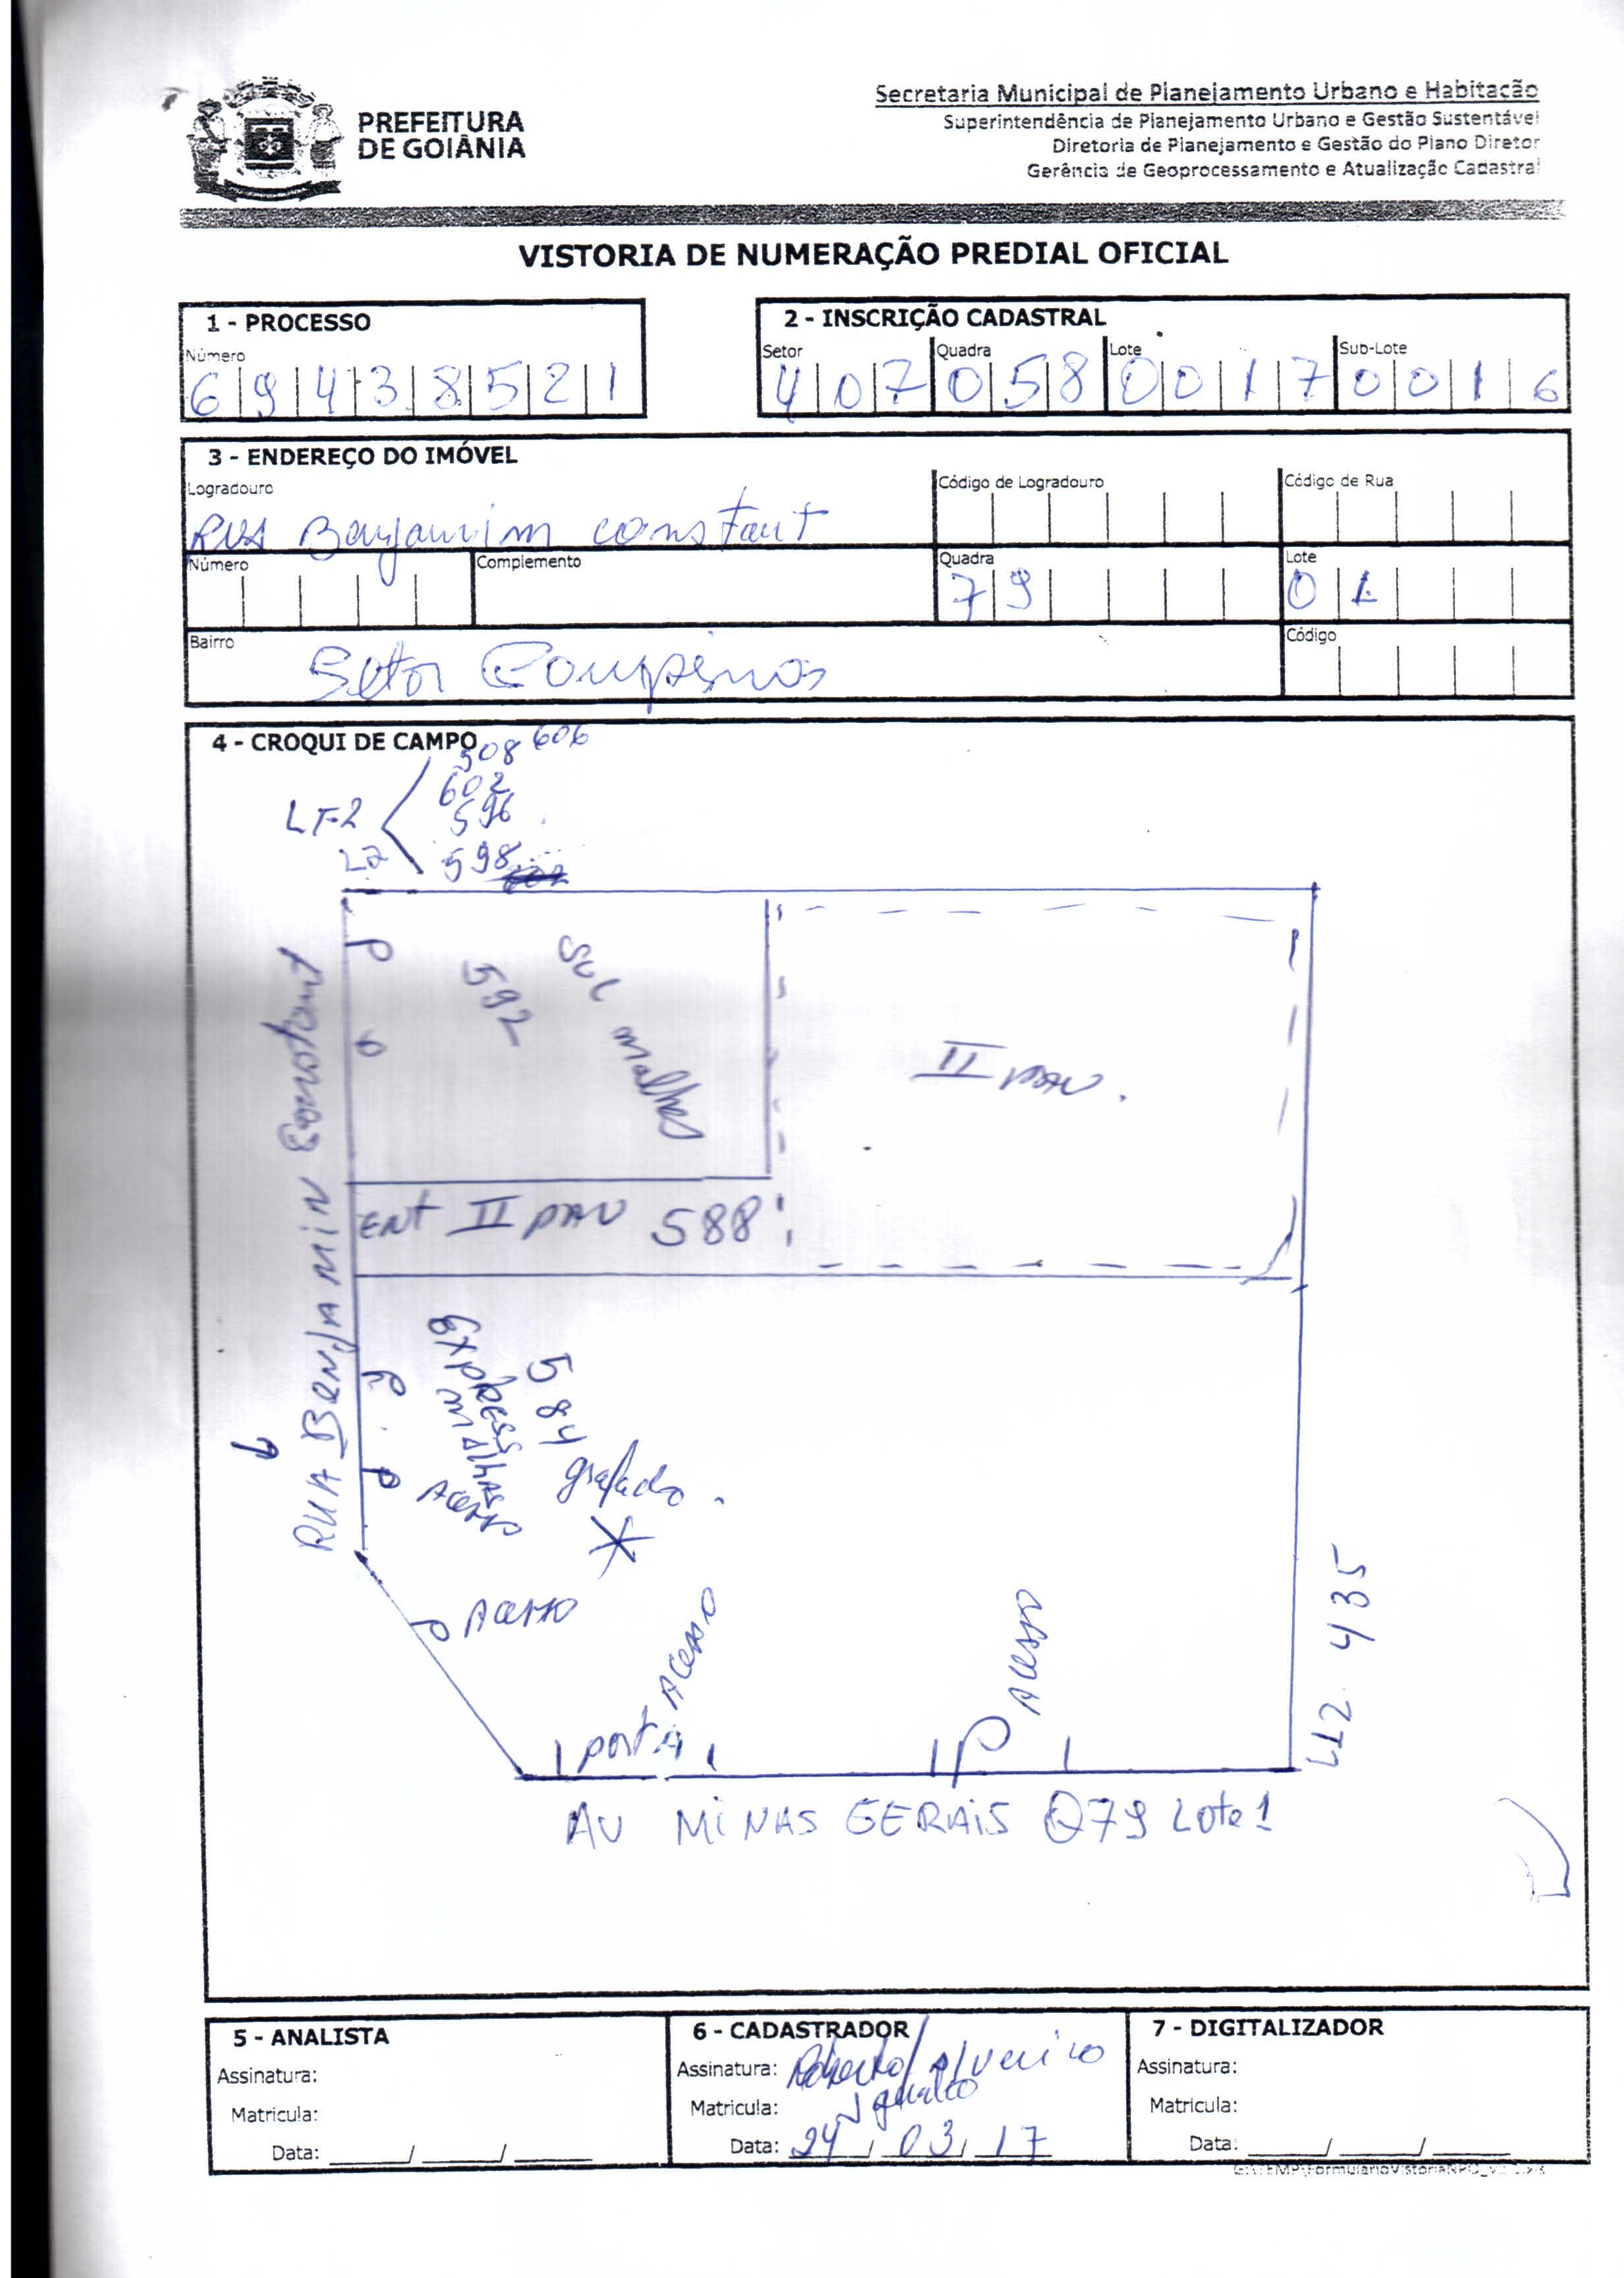 PREFEITURA
DE GOIÂNIA
Secretaria Municipal de Planejamento Urbano e Habitação
Superintendência de Planejamento Urbano e Gestão Sustentável
Diretoria de Planejamento e Gestão do Plano Diretor
Gerência de Geoprocessamento e Atualização Cadastral
VISTORIA DE NUMERAÇÃO PREDIAL OFICIAL
1 - PROCESSO
Número
6 9 4 3 8 5 2 1
2 - INSCRIÇÃO CADASTRAL
Setor Quadra Lote Sub-Lote
4 0 7 0 5 8 0 0 1 7 0 0 1 6
3 - ENDEREÇO DO IMÓVEL
Logradouro Código de Logradouro Código de Rua
RUA Benjamim constant
Número Complemento Quadra Lote
7 9 0 1
Bairro Código
Setor Campinas
4 - CROQUI DE CAMPO
508 606
602
LT-2 596
L2 598
592
SUL malhas
II PAV.
ENT II PAV 588
RUA BENJAMIN Constant
EXPRESS
MALHAS
584
grafado.
Acesso
Acesso
porta Acesso
Acesso
LT2 435
AV MINAS GERAIS Q79 Lote 1
5 - ANALISTA
Assinatura:
Matricula:
Data: / /
6 - CADASTRADOR
Assinatura: Roberto
Matricula:
Data: 24 / 03 / 17
7 - DIGITALIZADOR
Assinatura:
Matricula:
Data: / /